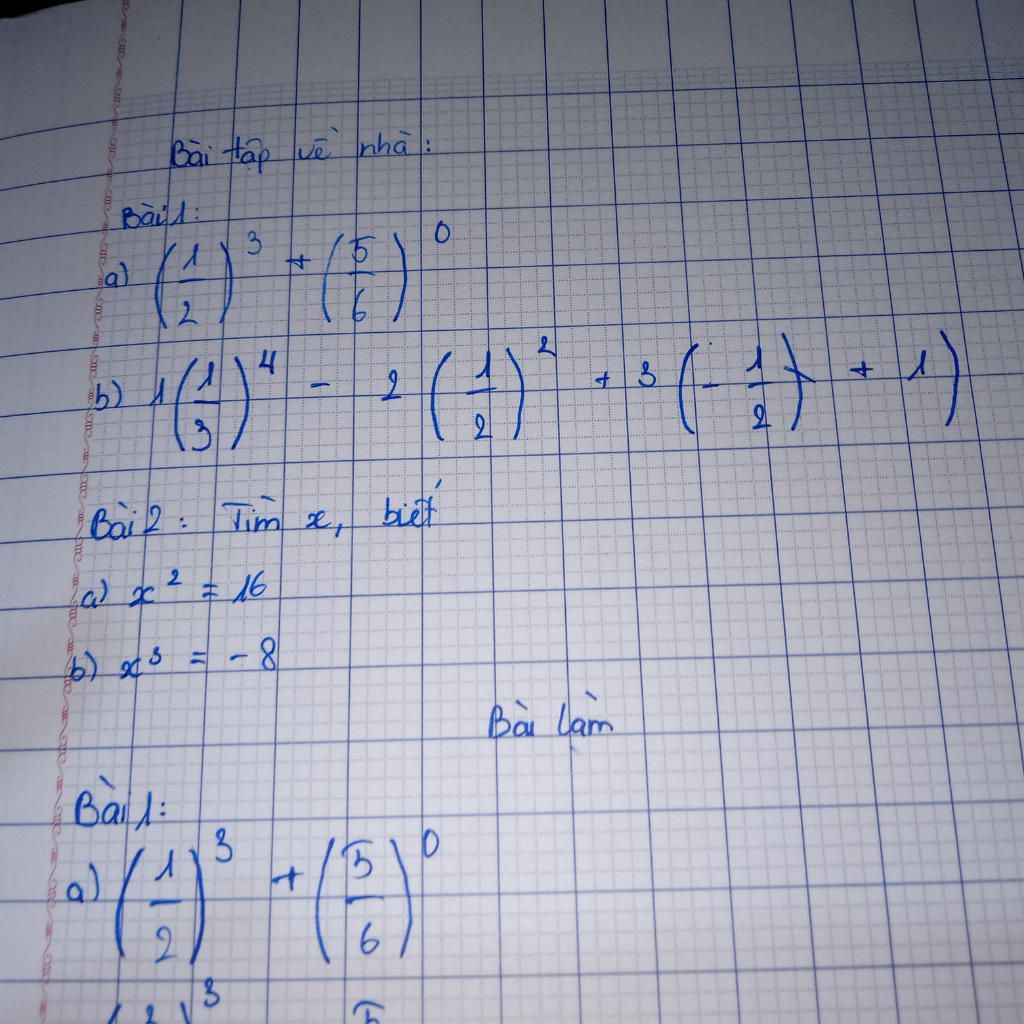 Bài tập về nhà:
Bài 1:
a) (1/2)^3 + (5/6)^0
b) 1(1/3)^4 - 2(1/2)^2 + 3(-1/2) + 1)
Bài 2: Tìm x, biết
a) x^2 = 16
b) x^3 = -8
Bài làm
Bài 1:
a) (1/2)^3 + (5/6)^0